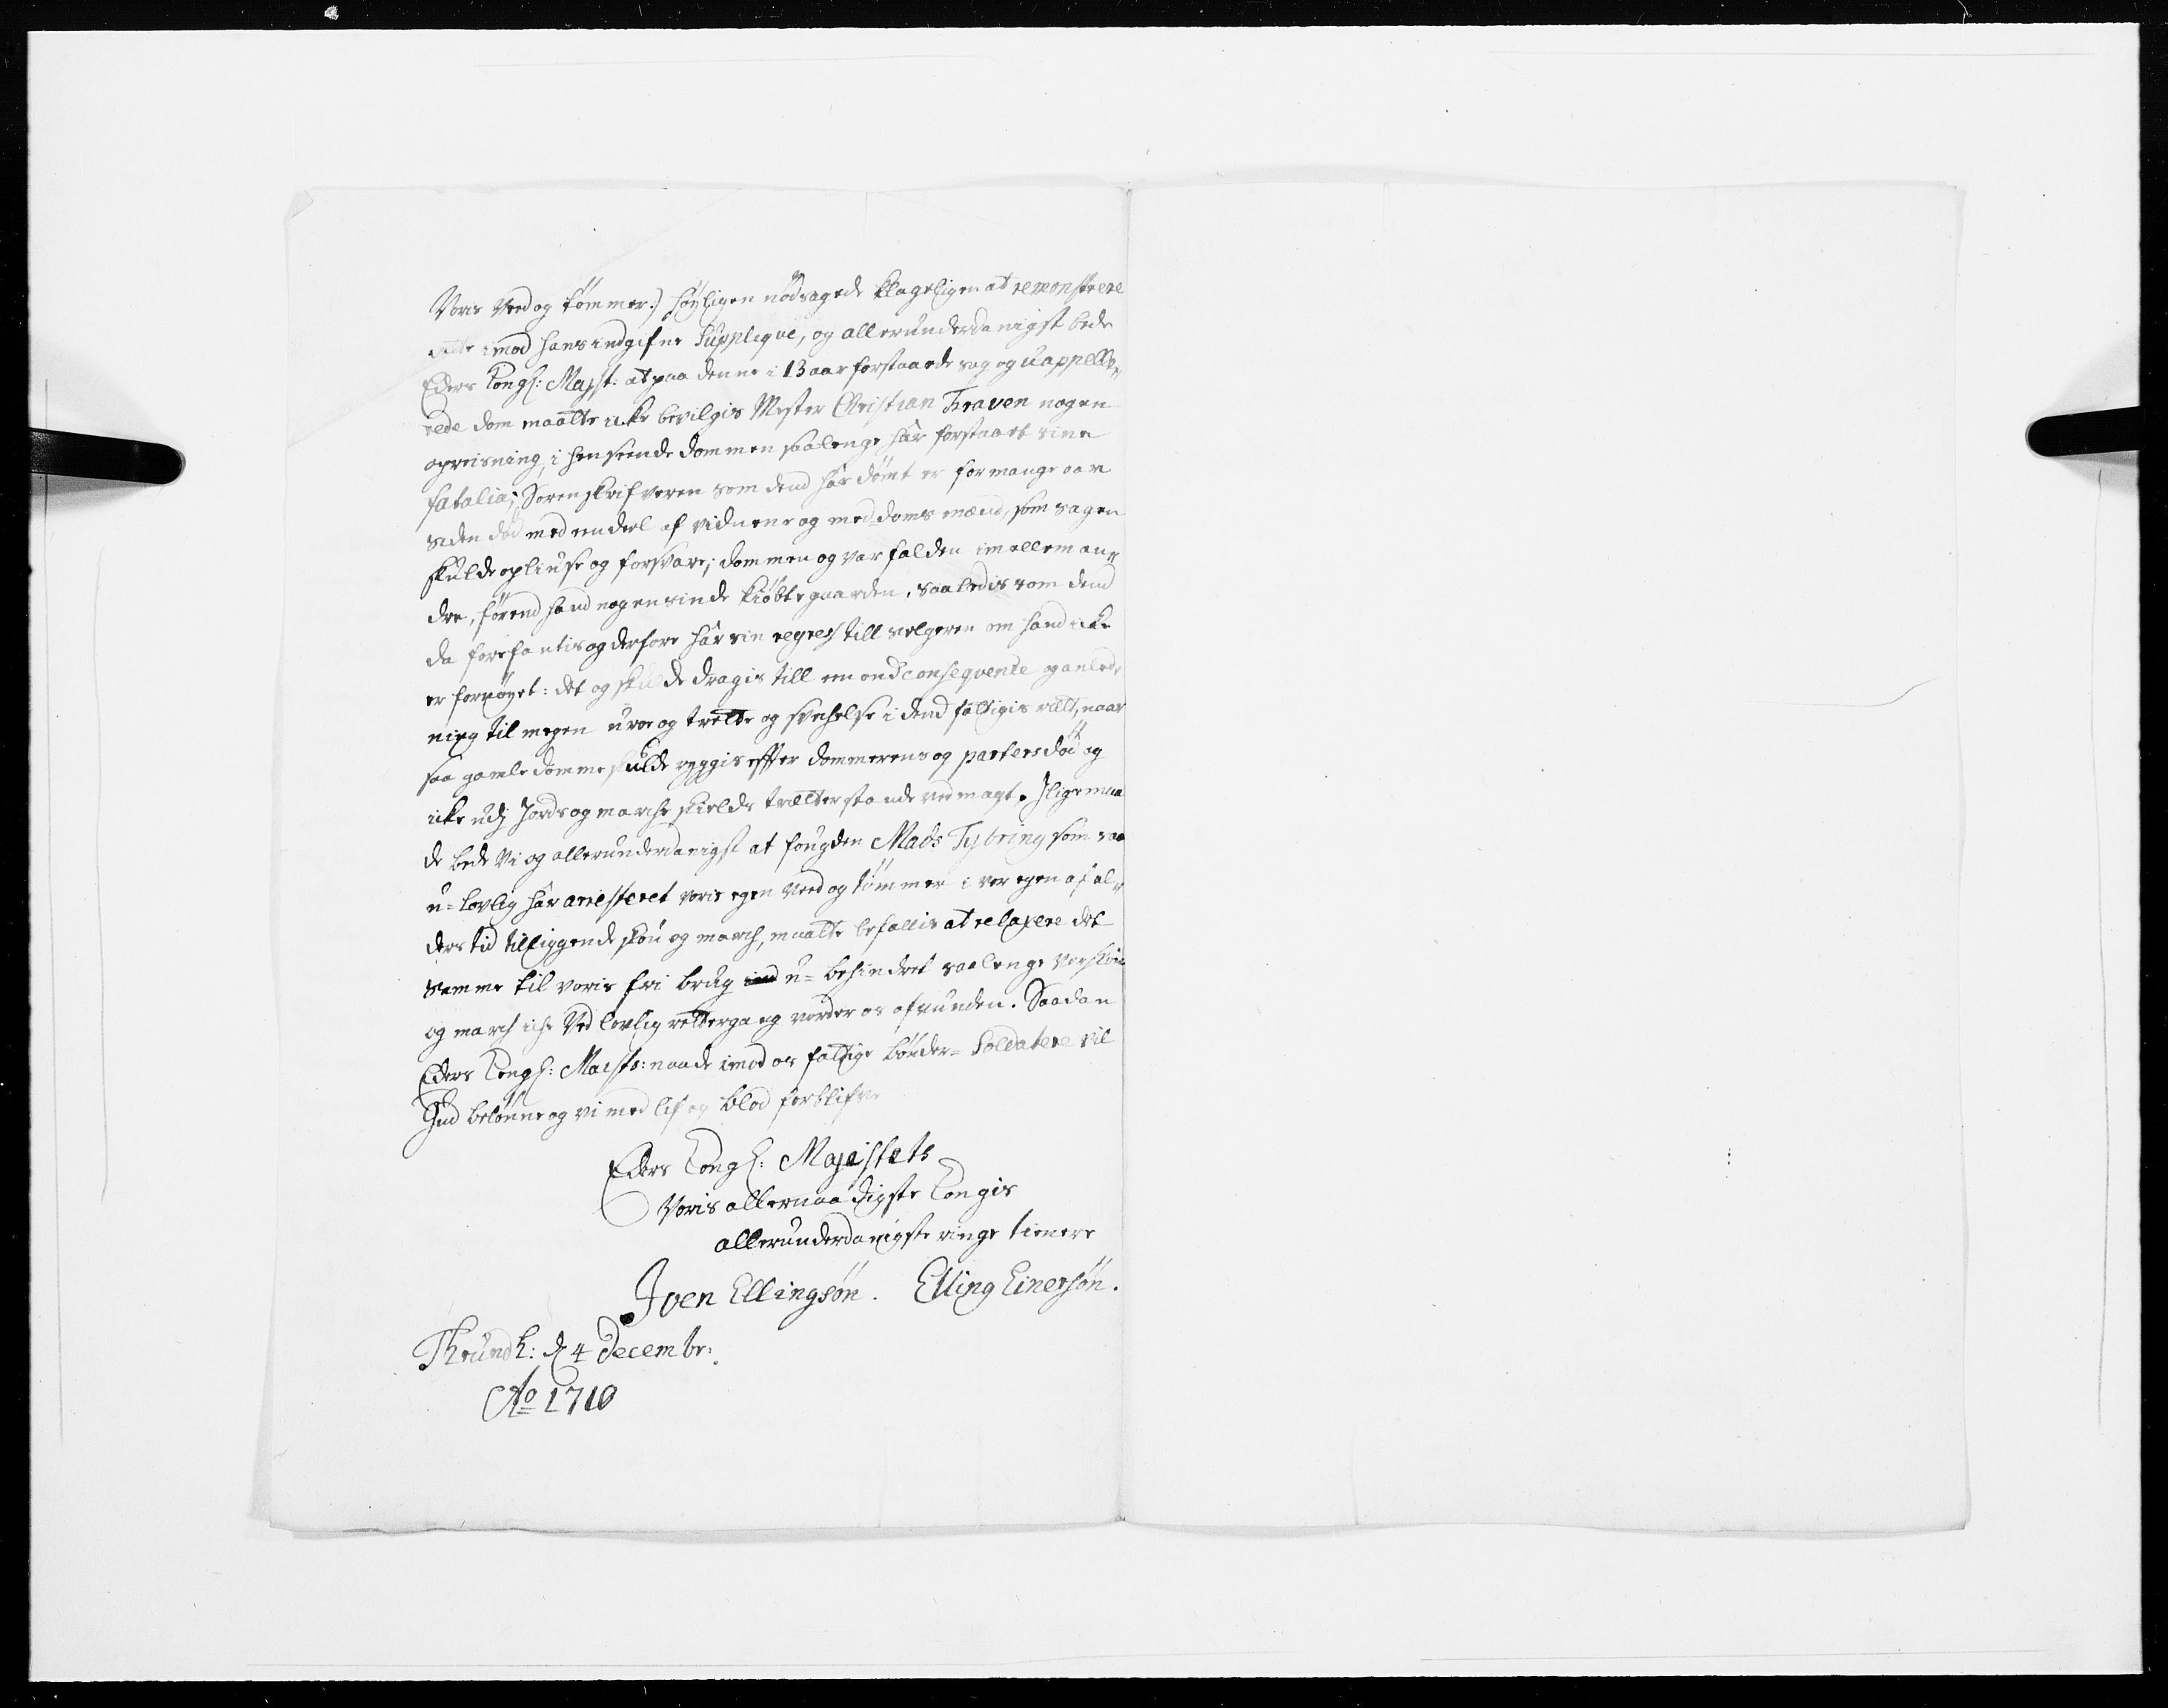 Voris Ved og tømmer:) høyligen nødsagede klageligen at remonstrere
dette imod hans indgifne Supplique, og allerunderdanigst bede
Eders Kongl: Mayst: at paa denne i 13 aar forstaaede sag og uappelle„
rede dom maatte icke bevilgis Mester Christian Fraven nogen
opreisning, i henseende dommen saalenge har forstaaet sine
fatalia; Sorenskrifveren som dend har dømt er for mange aar
siden død med endeel af vidnene og meddoms mænd, som sagen
skulde opliuse og forsvare; dommen og var falden imellem an„
dre, førend hand nogensinde kiøbte gaarden, saaledis som dend
da forefantis og derfore har sin regress till selgeren om hand icke
er fornøyet: det og skulde dragis till en ond consequente og anled„
ning til megen uroe og trætte og svechelse i dend fattigis rætt, naar
saa gamle domme skulde ryggis efter dommerens og parters død og
icke udj Jords og marche skields trætter stande ved magt. Jligemaa
de bede Vi og allerunderdanigst at fougden Mads Tybring som saa
u-lovlig har arresteret voris egen Ved og tømmer i vor egen af al„
ders tid tilliggende skou og march, maatte befallis at relaxere det
samme til voris fri brug u-behindret saalenge vor skou
og march iche Ved lovlig rettergang vorder os afvunden. Saadan
Eders Kongl: Maists: naade imod os fattige bønder-Soldatere vil
Gud belønne og vi med lif og blod forblifve
Eders Kongl: Majestets
Voris allernaadigste Kongis
allerunderdanigste ringe tienere
Iven Ellingsøn. Elling Einersøn.
Thrundh: d 4 Decembr:
Ao 1710